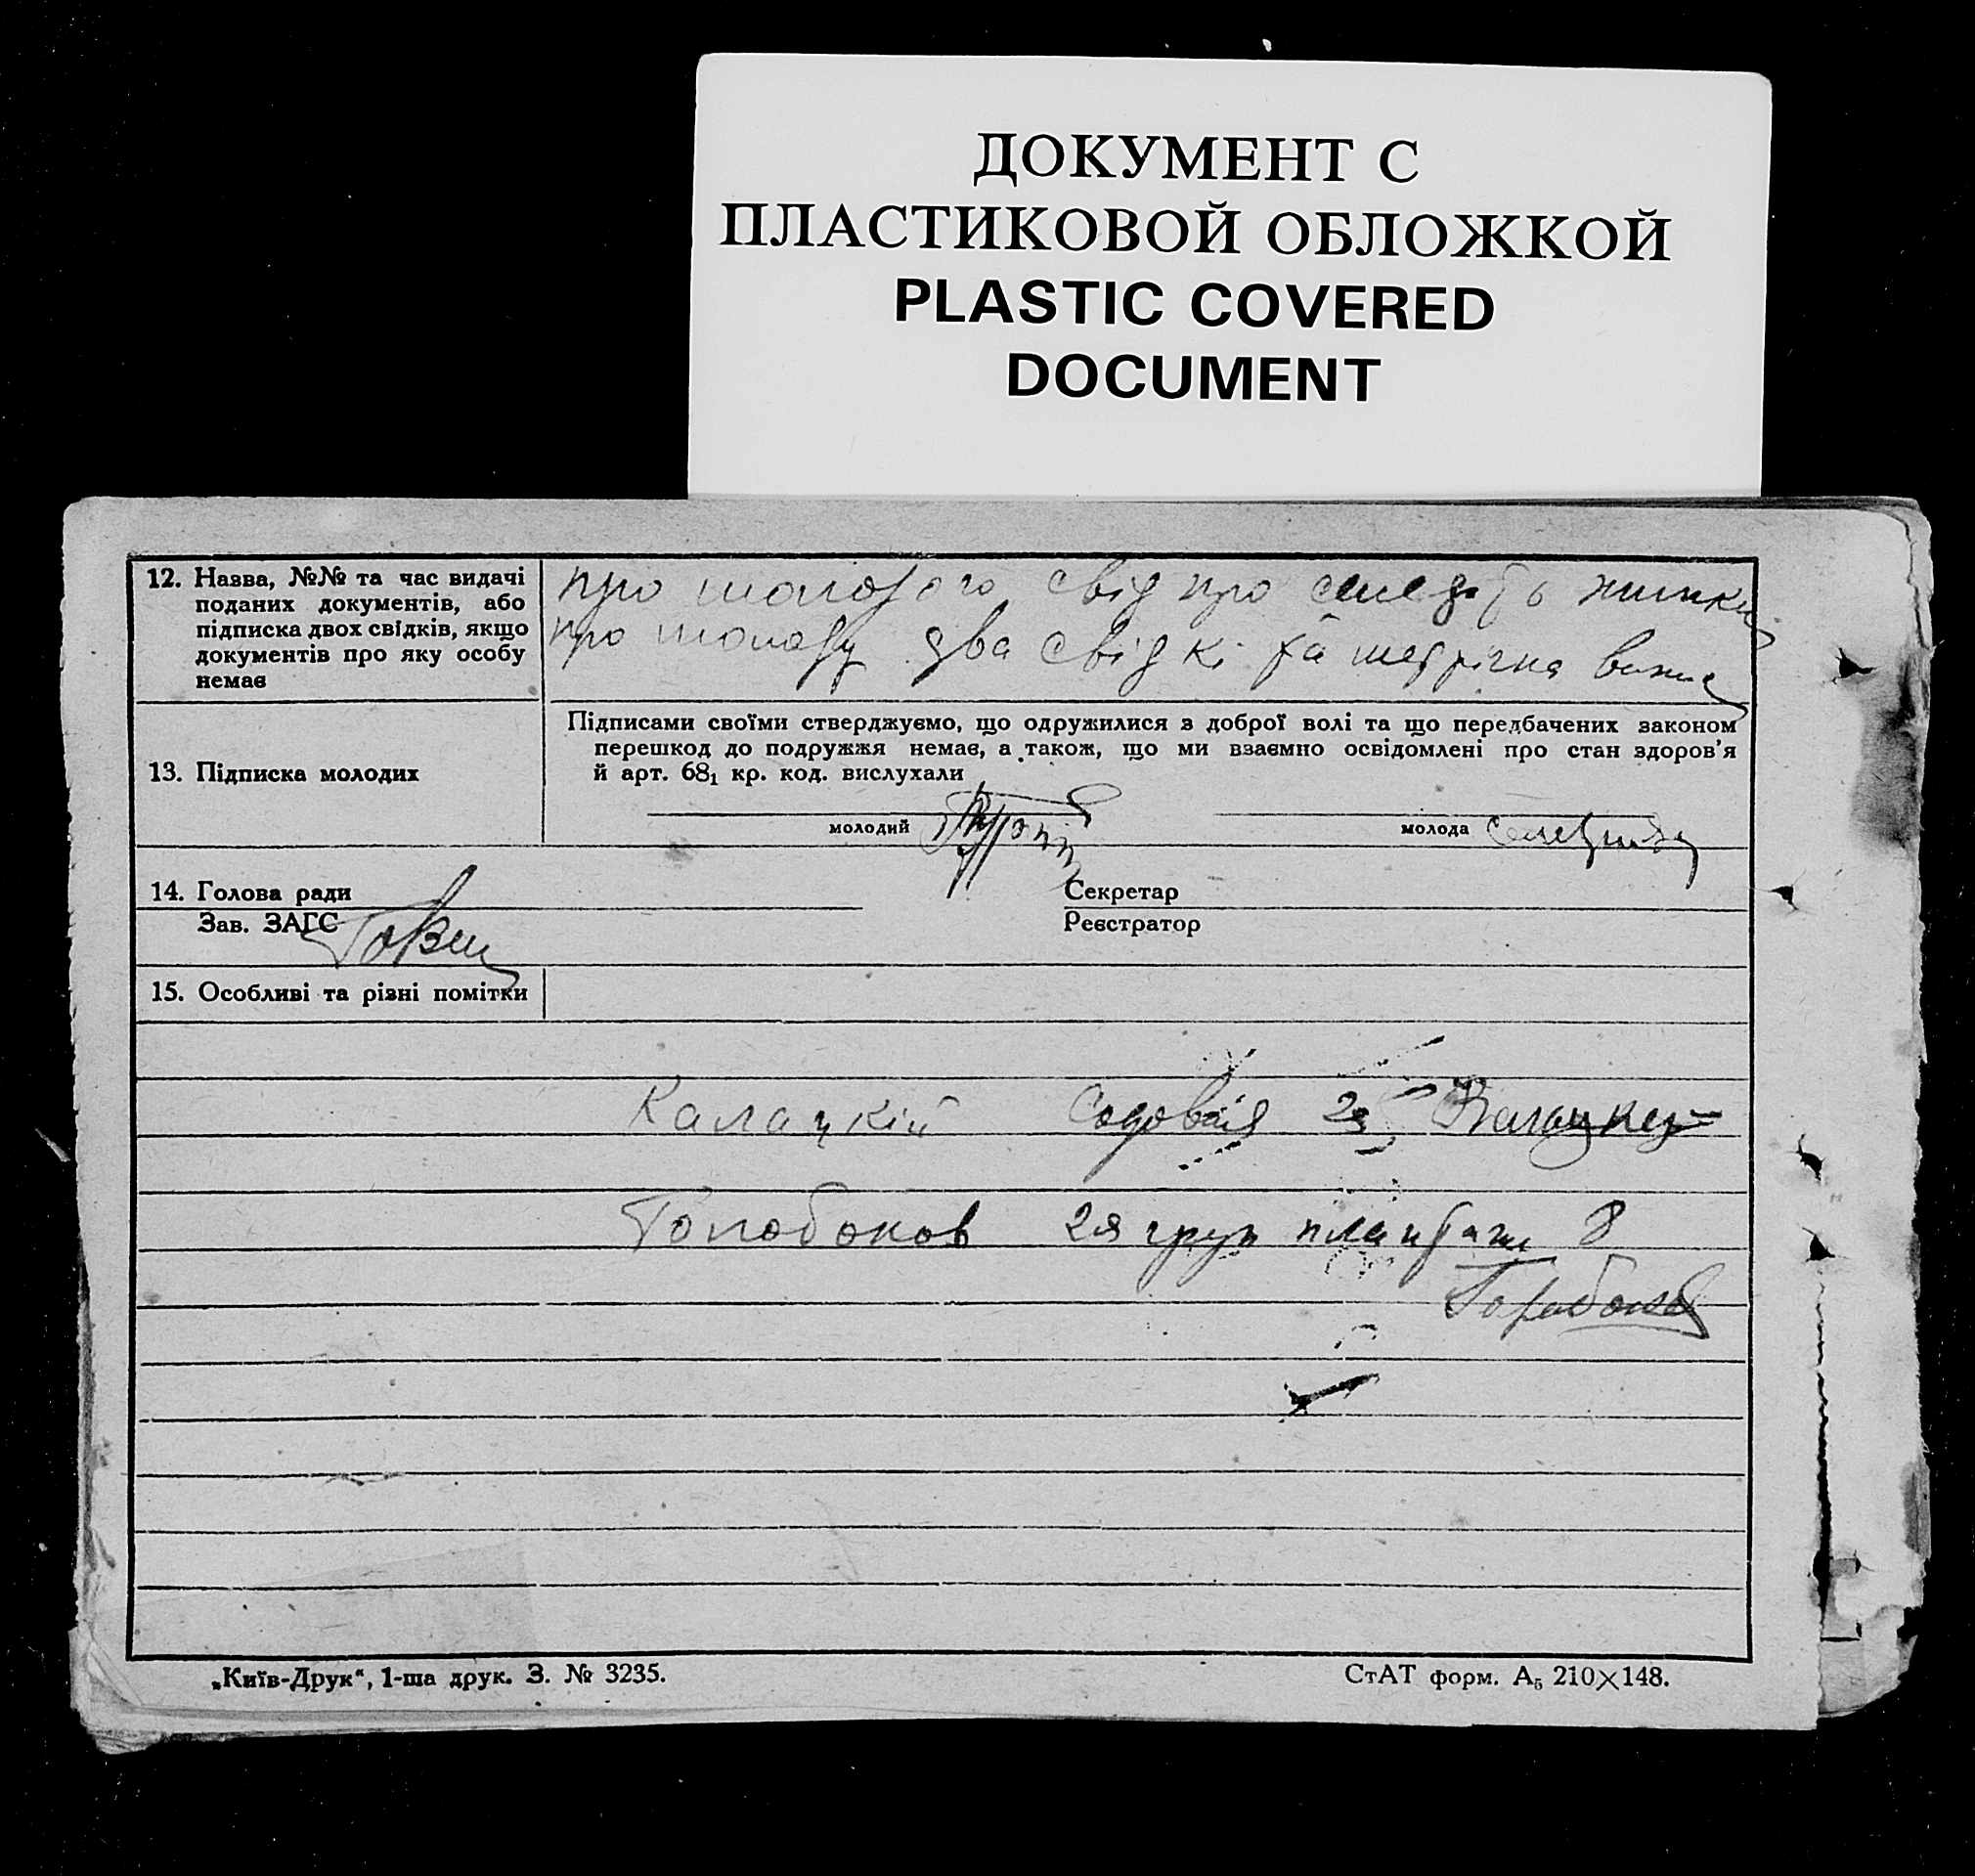 ДОКУМЕНТ С
ПЛАСТИКОВОЙ ОБЛОЖКОЙ
PLASTIC COVERED
DOCUMENT
12. Назва, №№ та час видачі
поданих документів, або
підписка двох свідків, якщо
документів про яку особу
немає
про молодого свід про смерть жинки
про молоду два свідкі та метрічна випис
13. Підписка молодих
Підписами своїми стверджуємо, що одружилися з доброї волі та що передбачених законом
перешкод до подружжя немає, а також, що ми взаємно освідомлені про стан здоров'я
й арт. 68₁ кр. код. вислухали
молодий
молода
14. Голова ради
Секретар
Зав. ЗАГС
Реєстратор
15. Особливі та різні помітки
Калацкій
Голобоков 2я груп 8
„Київ-Друк“, 1-ша друк. З. № 3235.
СтАТ форм. А₅ 210×148.